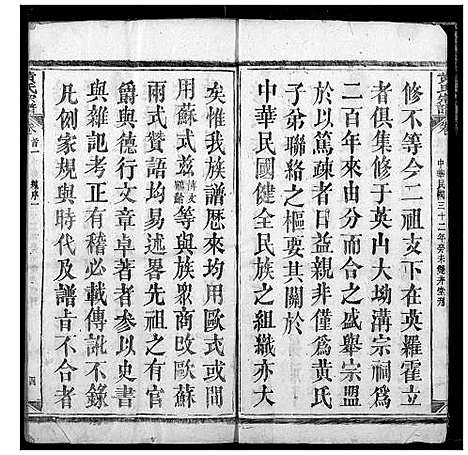 黃氏宗譜
中華民國三十二年癸未雙井堂刊
修不等今二祖支下在英羅霍立
者俱集修于英山大坳溝宗祠爲
二百年來由去日益合之盛舉宗盟
於以篤疎者以親豈僅爲黃氏
子弟聯絡之樞要其關於
中華民國健全民族之組織亦大
矣惟我族譜歷來均用歐式或間
用蘇式兹等與族眾商改歐蘇
兩式贊語均易述畧先祖有功
爵與德行文章卓著者參以史書
與雜記考正有稽必載傳訛不錄
凡例家規與時代及譜旨不合者
黃氏宗譜
卷首一
續序一
四